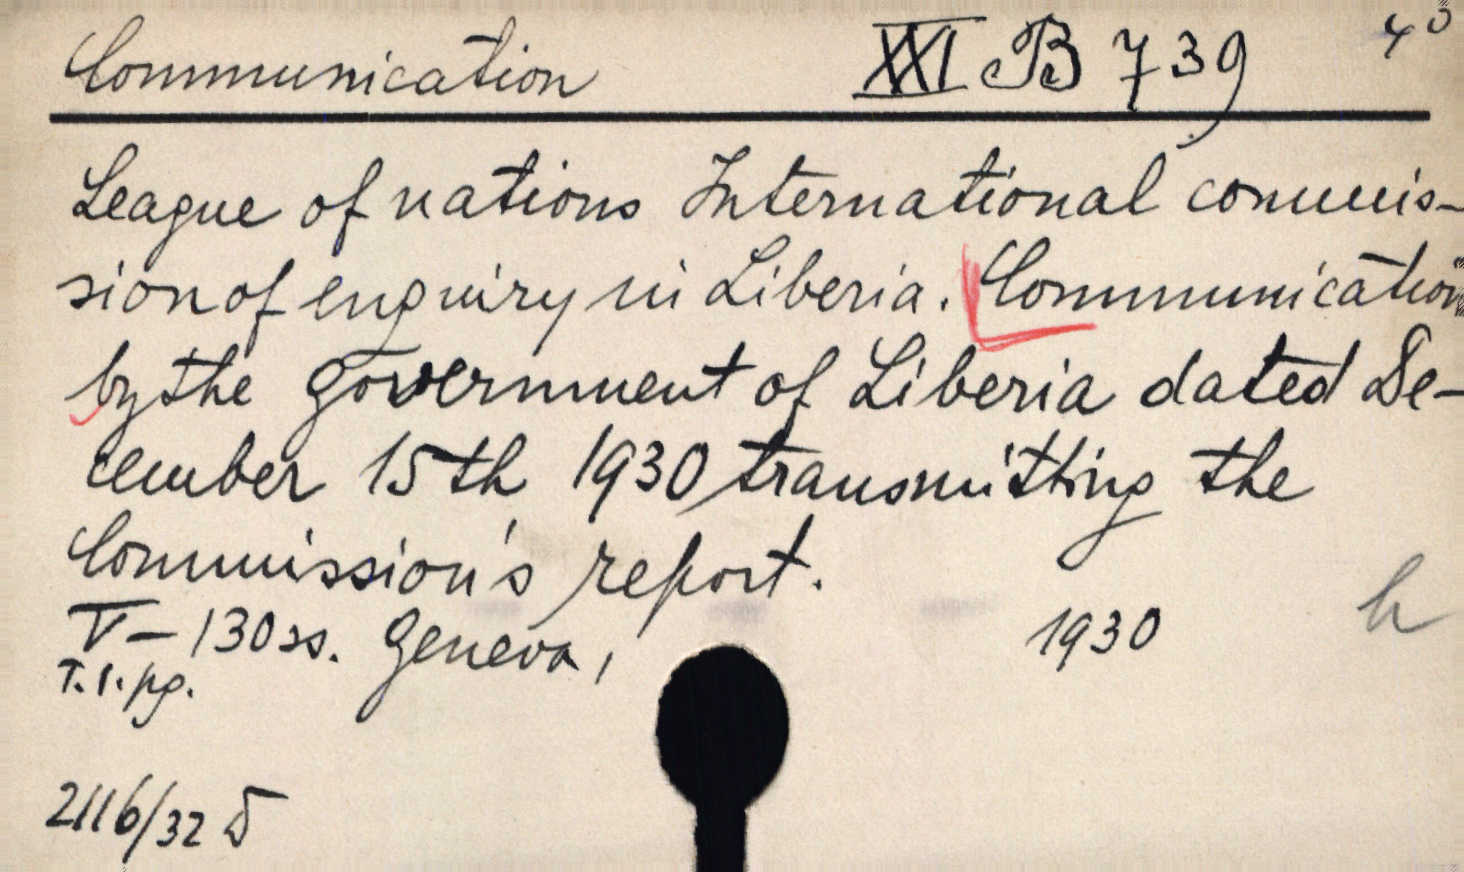 Communication XXI B 739 4°
League of nations International commis-
sion of enquiry in Liberia. Communication
by the government of Liberia dated De-
cember 15th 1930 transmitting the
Commission's report.
V-130 ss. Geneva, 1930 h
T. 1. pg.
2116/32